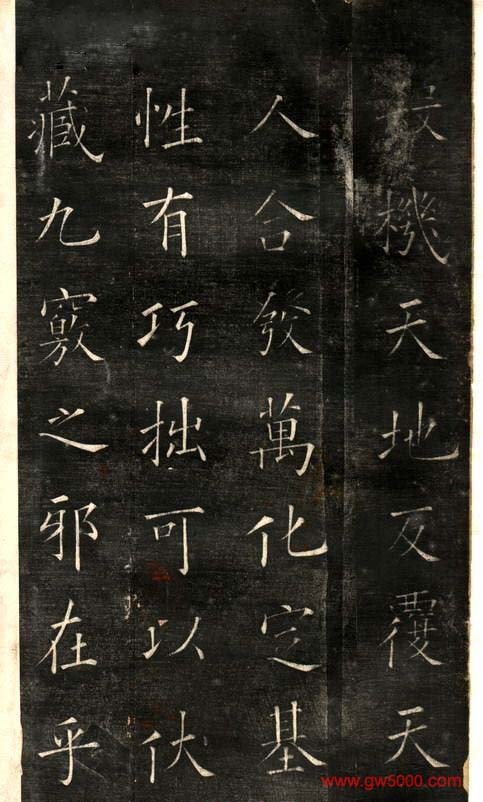 殺機天地反覆天
人合發萬化定基
性有巧拙可以伏
藏九竅之邪在乎
www.gw5000.com